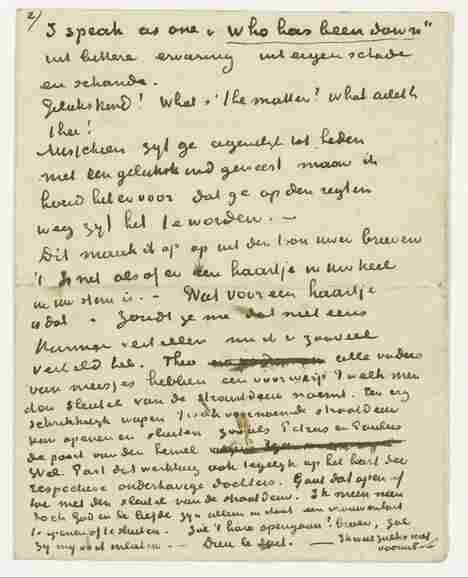 2)
I speak as one "who has been down"
uit bittere ervaring uit eigen schade
en schande.
Gelukskind! What's the matter? what aileth
thee!
Misschien zijt ge eigenlijk tot heden
niet een gelukskind geweest maar ik
houd het er voor dat ge op den regten
weg zijt het te worden. —
Dit maak ik op uit den toon uwer brieven
't Is net alsof er een haartje in uw keel
in uw stem is. — Wat voor een haartje
is dat. Zoudt ge me dat niet eens
kunnen vertellen nu ik u zooveel
verteld heb. Theo alle vaders
van meisjes hebben een voorwerp 't welk men
den sleutel van de straatdeur noemt. Een erg
schrikkelijk wapen 't welk voornoemde straatdeur
kan openen en sluiten zooals Petrus en Paulus
de poort van den hemel
Wel. Past dat werktuig ook tegelijk op het hart der
respectieve onderhavige dochters. Gaat dat open of
toe met den sleutel van de straatdeur. Ik meen neen
doch God en de liefde zijn alleen in staat een vrouwenhart
te openen of te sluiten. Zal 't hare opengaan? broer, zal
zij mij ooit inlaten. — Dieu le sait. —